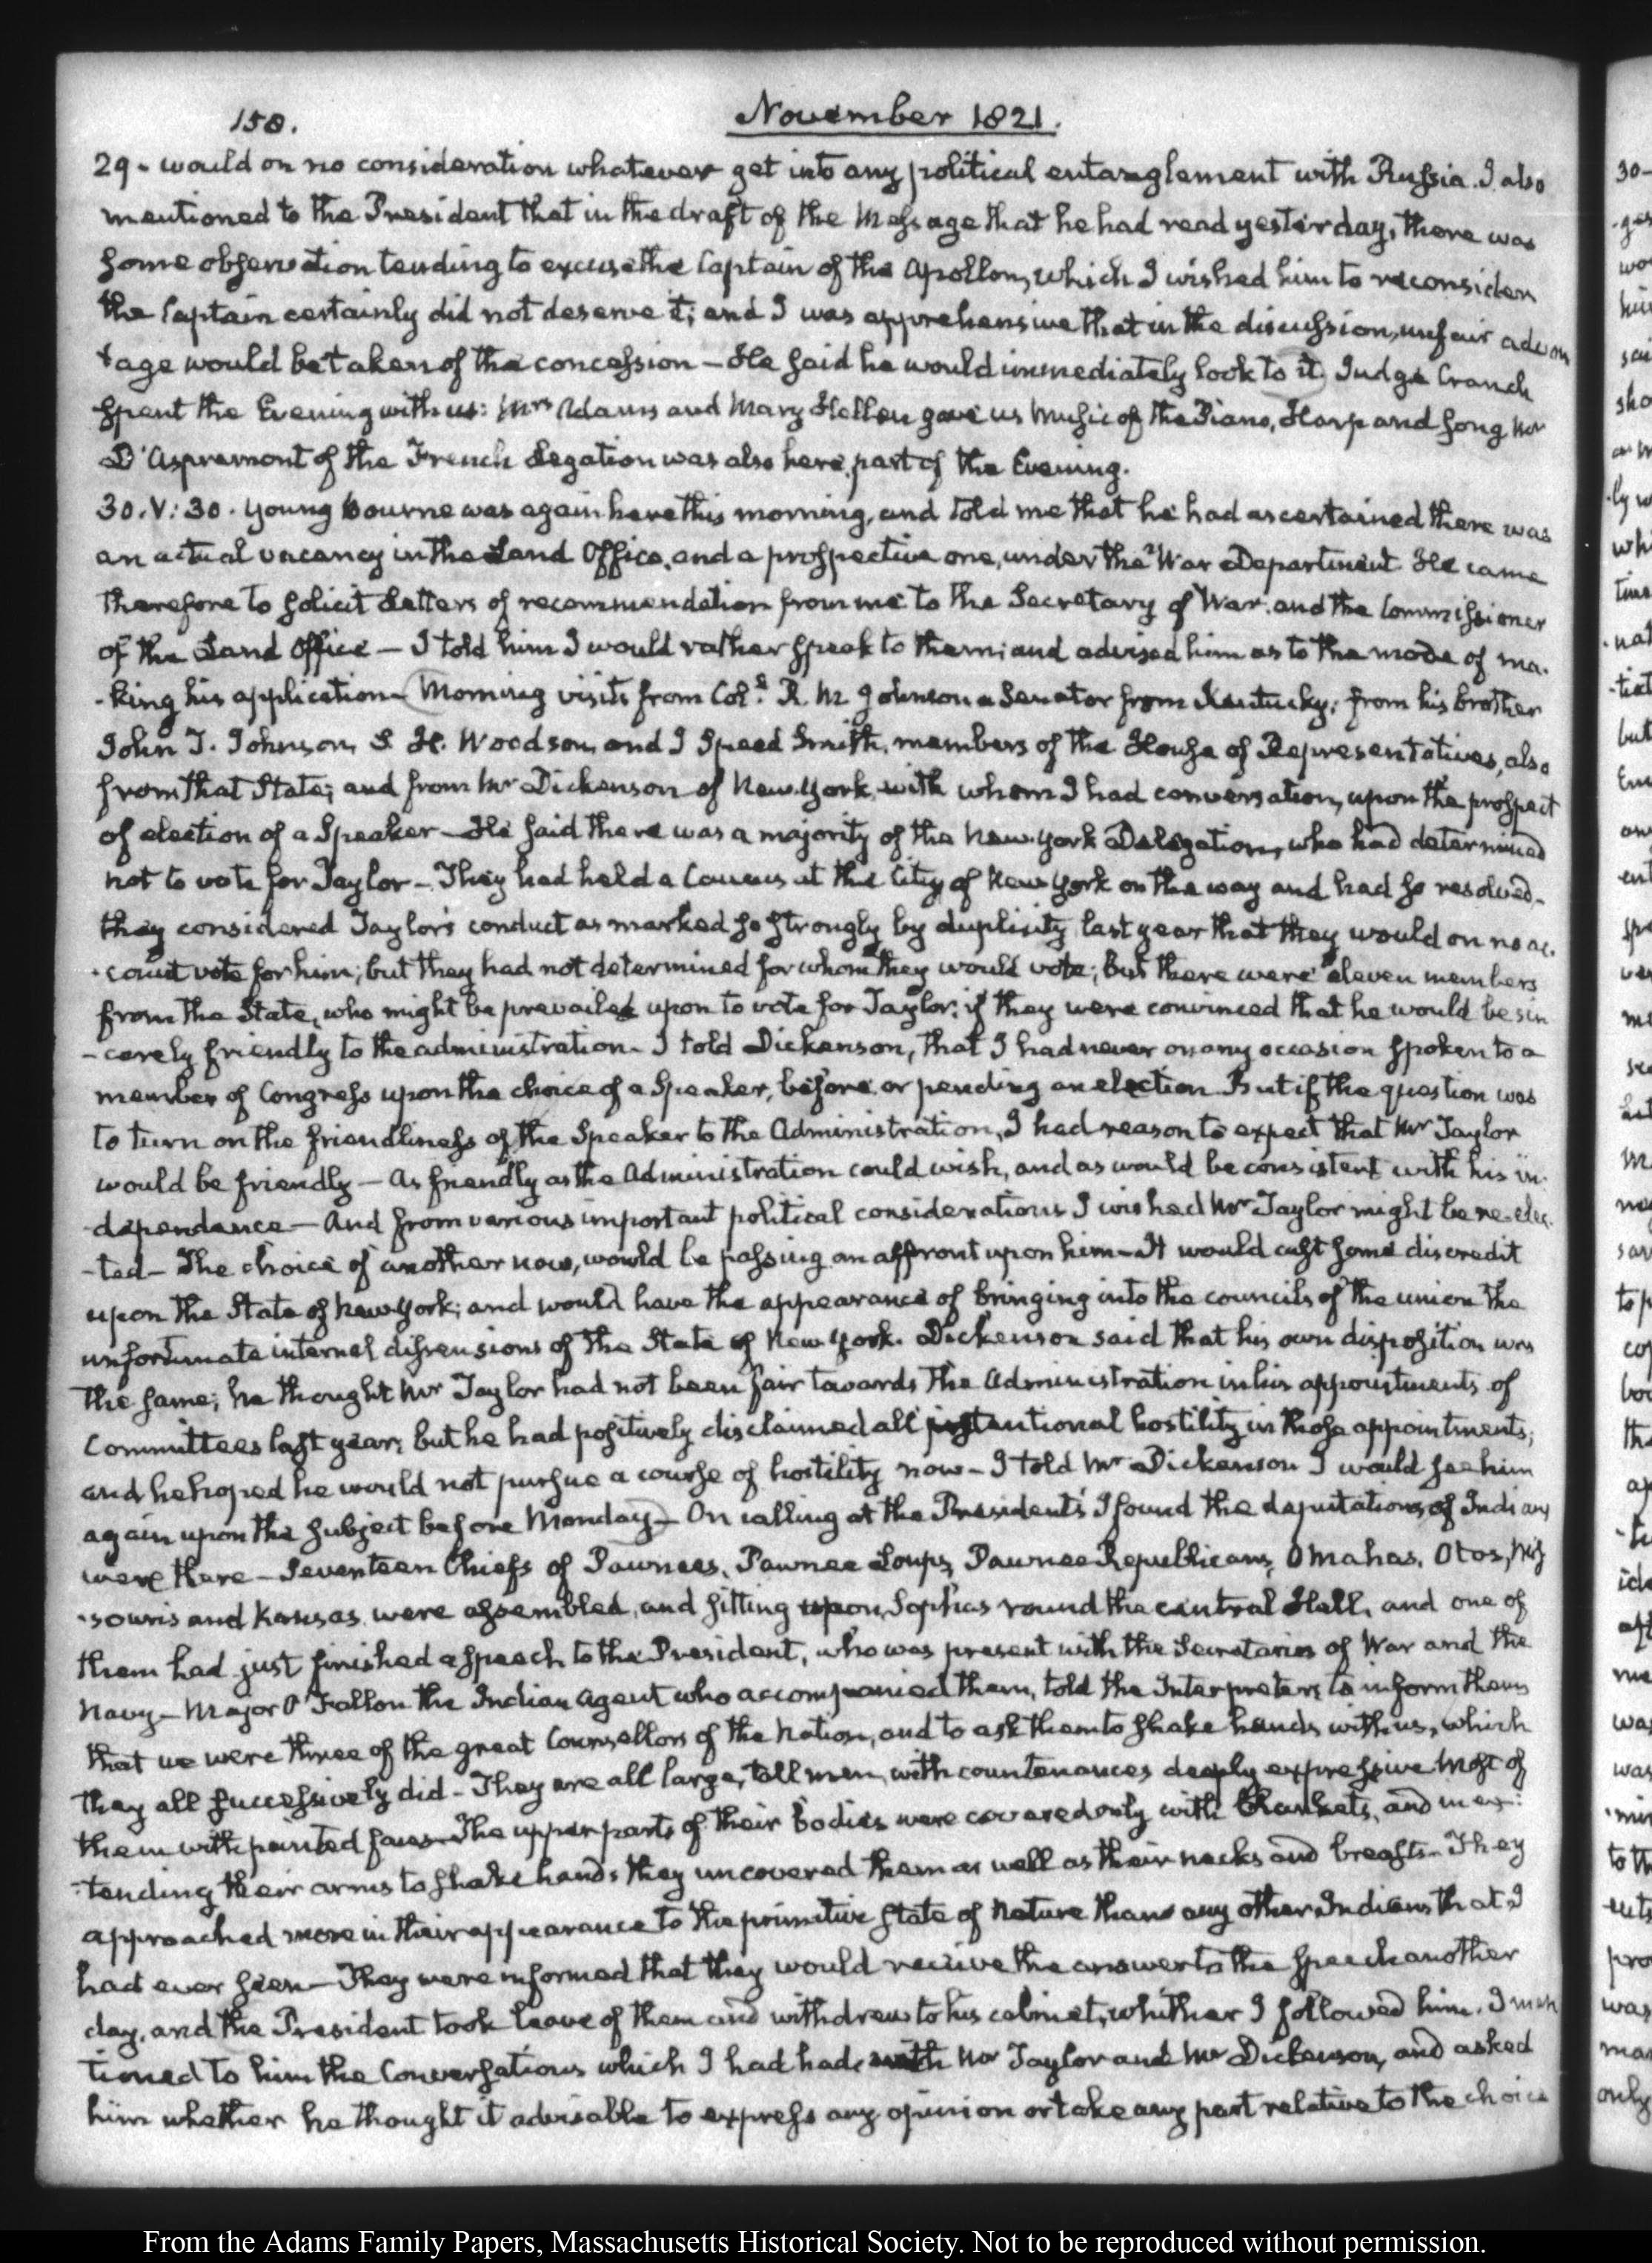 158.
November 1821.
29. would on no consideration whatever get into any political entanglement with Russia. I also
mentioned to the President that in the draft of the Message that he had read yesterday, there was
some observation tending to excuse the Captain of the Apollon, which I wished him to reconsider
the Captain certainly did not deserve it; and I was apprehensive that in the discussion, unfair advan
tage would be taken of the concession — He said he would immediately look to it. Judge Cranch
spent the Evening with us: Mrs Adams and Mary Hellen gave us Music of the Piano, Harp and Song Mr
D'Aspremont of the French Legation was also here, part of the Evening.
30. V:30. Young Bourne was again here this morning, and told me that he had ascertained there was
an actual vacancy in the Land Office, and a prospective one, under the War Department He came
therefore to solicit Letters of recommendation from me to the Secretary of War and the Commissioner
of the Land Office — I told him I would rather speak to them; and advised him as to the mode of ma-
-king his application — Morning visits from Col. R. M. Johnson a Senator from Kentucky; from his brother
John T. Johnson, S. H. Woodson, and J Speed Smith, members of the House of Representatives, also
from that State; and from Mr Dickenson of New-York, with whom I had conversation, upon the prospect
of election of a Speaker — He said there was a majority of the New-York Delegation, who had determined
not to vote for Taylor — They had held a Caucus at the City of New-York on the way and had so resolved —
they considered Taylor's conduct as marked so strongly by duplicity last year that they would on no ac-
-count vote for him; but they had not determined for whom they would vote; But there were eleven members
from the State, who might be prevailed upon to vote for Taylor; if they were convinced that he would be sin
-cerely friendly to the administration — I told Dickenson, that I had never on any occasion spoken to a
member of Congress upon the choice of a Speaker, before or pending an election But if the question was
to turn on the friendliness of the Speaker to the Administration, I had reason to expect that Mr Taylor
would be friendly — As friendly as the Administration could wish, and as would be consistent with his in-
-dependance — And from various important political considerations I wished Mr Taylor might be re-elec-
-ted — The choice of another now, would be passing an affront upon him — It would cast some discredit
upon the State of New-York; and would have the appearance of bringing into the councils of the union the
unfortunate internal dissensions of the State of New-York. Dickenson said that his own disposition was
the same; he thought Mr Taylor had not been fair towards the Administration in his appointments of
Committees last year; but he had positively disclaimed all intentional hostility in those appointments;
and he hoped he would not pursue a course of hostility now — I told Mr Dickenson I would see him
again upon the subject before Monday — On calling at the President's I found the deputations of Indians
were there — Seventeen Chiefs of Pawnees, Pawnee Loups, Pawnee Republicans, Omahas, Otos, Mis
-souris and Kansas were assembled, and sitting upon Sophas round the central Hall, and one of
them had just finished a speech to the President, who was present with the Secretaries of War and the
Navy — Major O'Fallon the Indian Agent who accompanied them, told the Interpreters to inform them
that we were three of the great Counsellors of the Nation, and to ask them to shake hands with us, which
they all successively did — They are all large, tall men, with countenances deeply expressive Most of
them with painted faces — The upper parts of their bodies were covered only with blankets, and in ex-
-tending their arms to shake hands they uncovered them as well as their necks and breasts — They
approached more in their appearance to the primitive state of Nature than any other Indians that I
had ever seen — They were informed that they would receive the answer to the speech another
day, and the President took leave of them and withdrew to his cabinet, whither I followed him. I men
tioned to him the Conversations which I had had with Mr Taylor and Mr Dickenson, and asked
him whether he thought it advisable to express any opinion or take any part relative to the choice
From the Adams Family Papers, Massachusetts Historical Society. Not to be reproduced without permission.